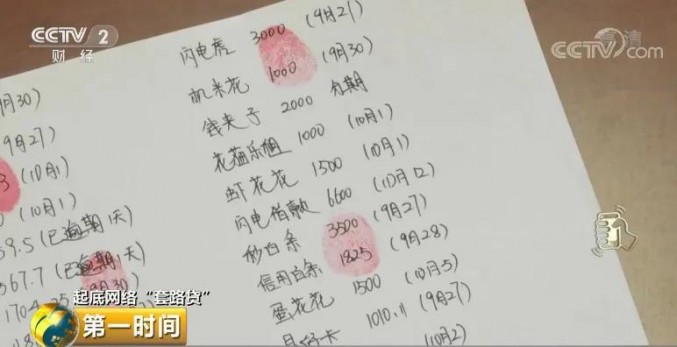 CCTV 2
财经
CCTV.com
高清
闪电虎 3000 (9月27)
1000 (9月30)
钱夹子 2000
花猫乐佃 1000 (10月1)
虾花花 1500 (10月1)
闪电借款 6600 (10月12)
秒白条 3500 (9月27)
信用白条 1825 (9月28)
蛋花花 1500 (10月5)
1010.11 (9月27)
(10月2)
月30)
9月27)
(10月1)
(10月1)
59.5 (已逾期1天)
567.7 (已逾期1天)
9月30)
起底网络“套路贷”
第一时间